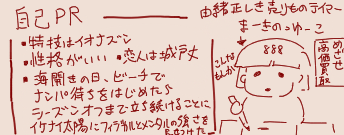 自己PR
・特技はイオナズン
・性格がいい ・恋人は城戸丈
・海開きの日、ビーチで
ナンパ待ちをはじめたら
シーズンオフまで立ち続けることに
イケナイ太陽にフィジカルとメンタルの強さを
由緒正しき売りものテイマー
まーきのっゅーこ
こんな
もんか
888
めざせ
高価買取